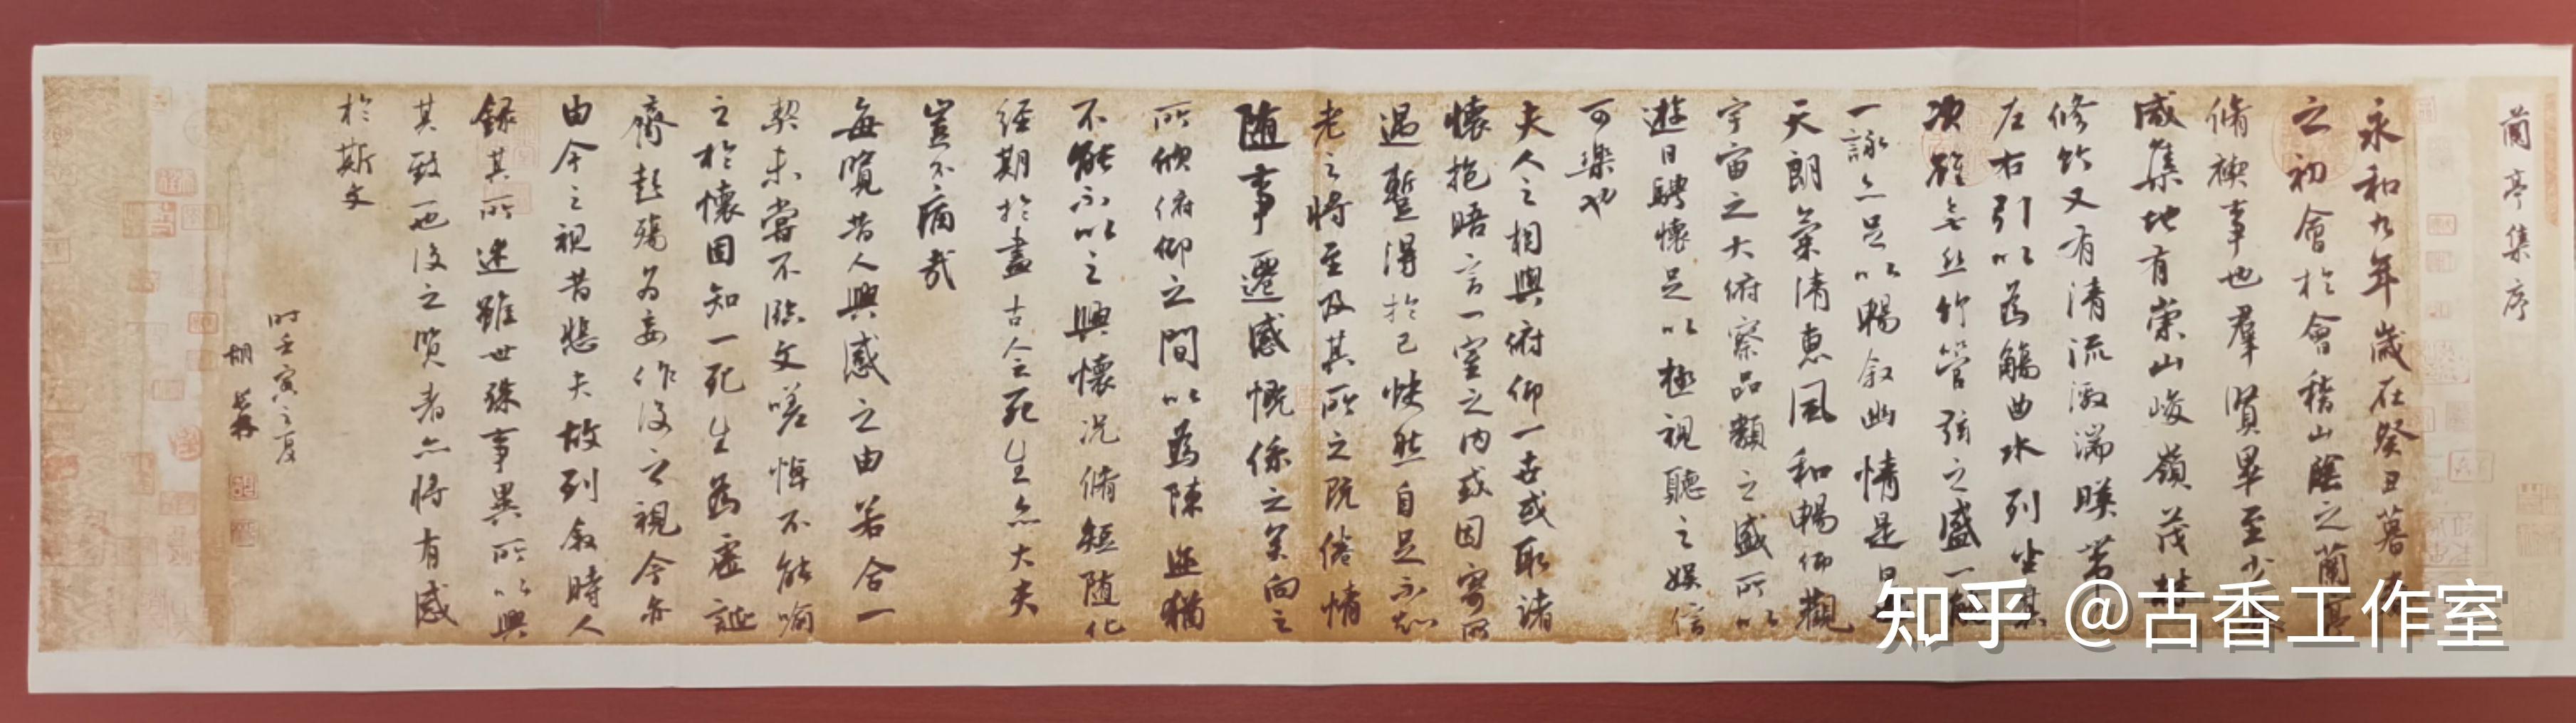 蘭亭集序
永和九年歲在癸丑暮
之初會於會稽山陰之蘭亭
脩禊事也羣賢畢至少
咸集地有崇山峻嶺茂林
修竹又有清流激湍暎帶
左右引以為觴曲水列坐其
次雖無絲竹管弦之盛一觴
一詠亦足以暢敘幽情是日也
天朗氣清惠風和暢仰觀
宇宙之大俯察品類之盛所以
遊目騁懷足以極視聽之娛信
可樂也
夫人之相與俯仰一世或取諸
懷抱晤言一室之內或因寄所
遇蹔得於己快然自足不知
老之將至及其所之既倦情
随事遷感慨係之矣向之
所欣俯仰之間以為陳迹猶
不能不以之興懷况脩短随化
終期於盡古人云死生亦大矣
豈不痛哉
每覽昔人興感之由若合一
契未嘗不臨文嗟悼不能喻
之於懷固知一死生為虛誕
齊彭殤為妄作後之視今亦
由今之視昔悲夫故列敘時人
録其所述雖世殊事異所以興
懷其致一也後之覽者亦將有感
於斯文
时壬寅之夏
胡
知乎 @古香工作室